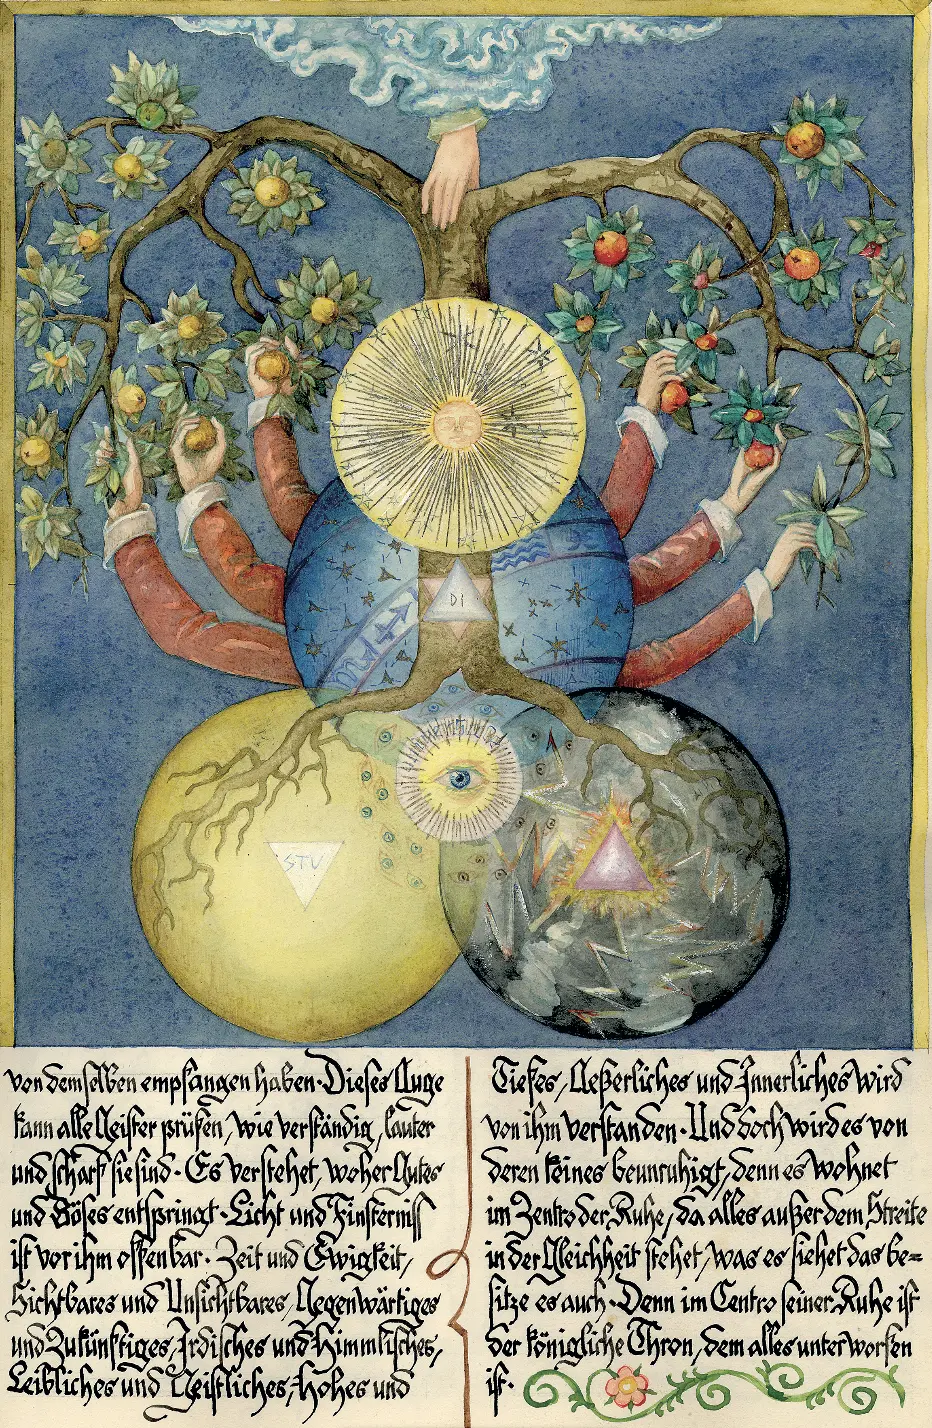 DI
STU
von demselben empfangen haben· Dieses Auge
kann alle Geister prüfen, wie verständig, lauter
und scharf sie sind· Es verstehet, woher Gutes
und Böses entspringt· Licht und Finsterniß
ist vor ihm offenbar· Zeit und Ewigkeit,
Sichtbares und Unsichtbares, Gegenwärtiges
und Zukünftiges, Irdisches und Himmlisches,
Leibliches und Geistliches, Hohes und
Tiefes, Aeßerliches und Innerliches wird
von ihm verstanden· Und doch wird es von
deren keines beunruhigt, denn es wohnet
im Zentro der Ruhe, da alles außer dem Streite
in der Gleichheit stehet, was es siehet das be=
sitze es auch· Denn im Centro seiner Ruhe ist
der königliche Thron, dem alles unterworfen
ist·